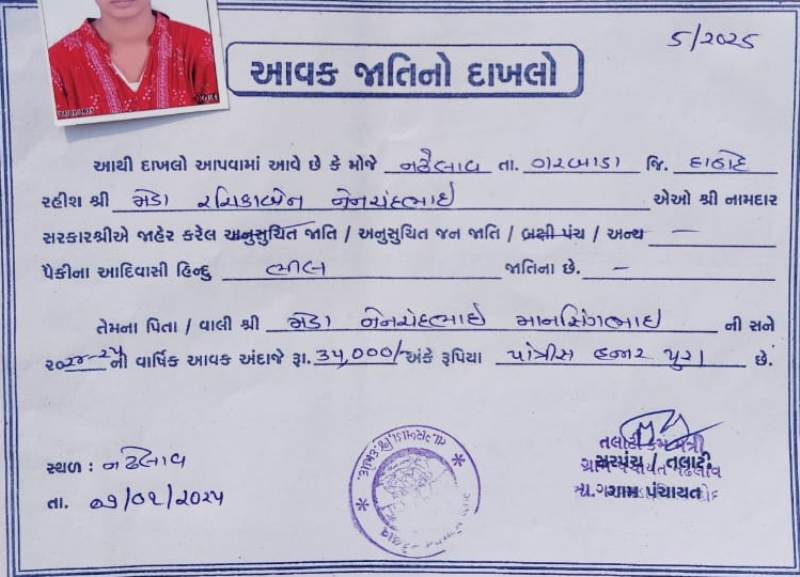 5/2025
આવક જાતિનો દાખલો
આથી દાખલો આપવામાં આવે છે કે મોજે નઢેલાવ તા. ગરબાડા જિ. દાહોદ
રહીશ શ્રી મેડા રસિકાબેન નેનચંદભાઇ એઓ શ્રી નામદાર
સરકારશ્રીએ જાહેર કરેલ અનુસુચિત જાતિ / અનુસુચિત જન જાતિ / બક્ષી પંચ / અન્ય —
પૈકીના આદિવાસી હિન્દુ ભીલ જાતિના છે. —
તેમના પિતા / વાલી શ્રી મેડા નેનચંદભાઇ માનસિંગભાઇ ની સને
૨૦૨૪-૨૫ની વાર્ષિક આવક અંદાજે રૂા. ૩૫,૦૦૦/- અંકે રૂપિયા પાંત્રીસ હજાર પુરા છે.
તલાટી કમ મંત્રી
સ્થળ : નઢેલાવ
સરપંચ / તલાટી
ગ્રામ પંચાયત નઢેલાવ
તા. ૦૧/૦૧/૨૦૨૫
ગ્રામ પંચાયત